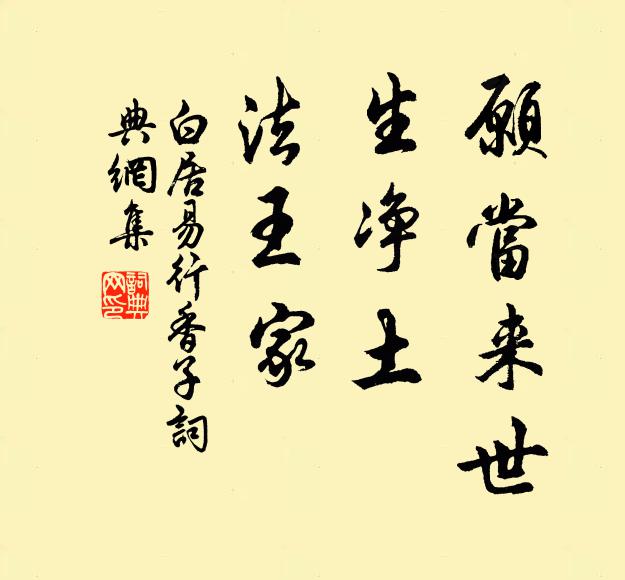 願當来世
生净土
法王家
白居易行香子詞
典網集
詞典
网印